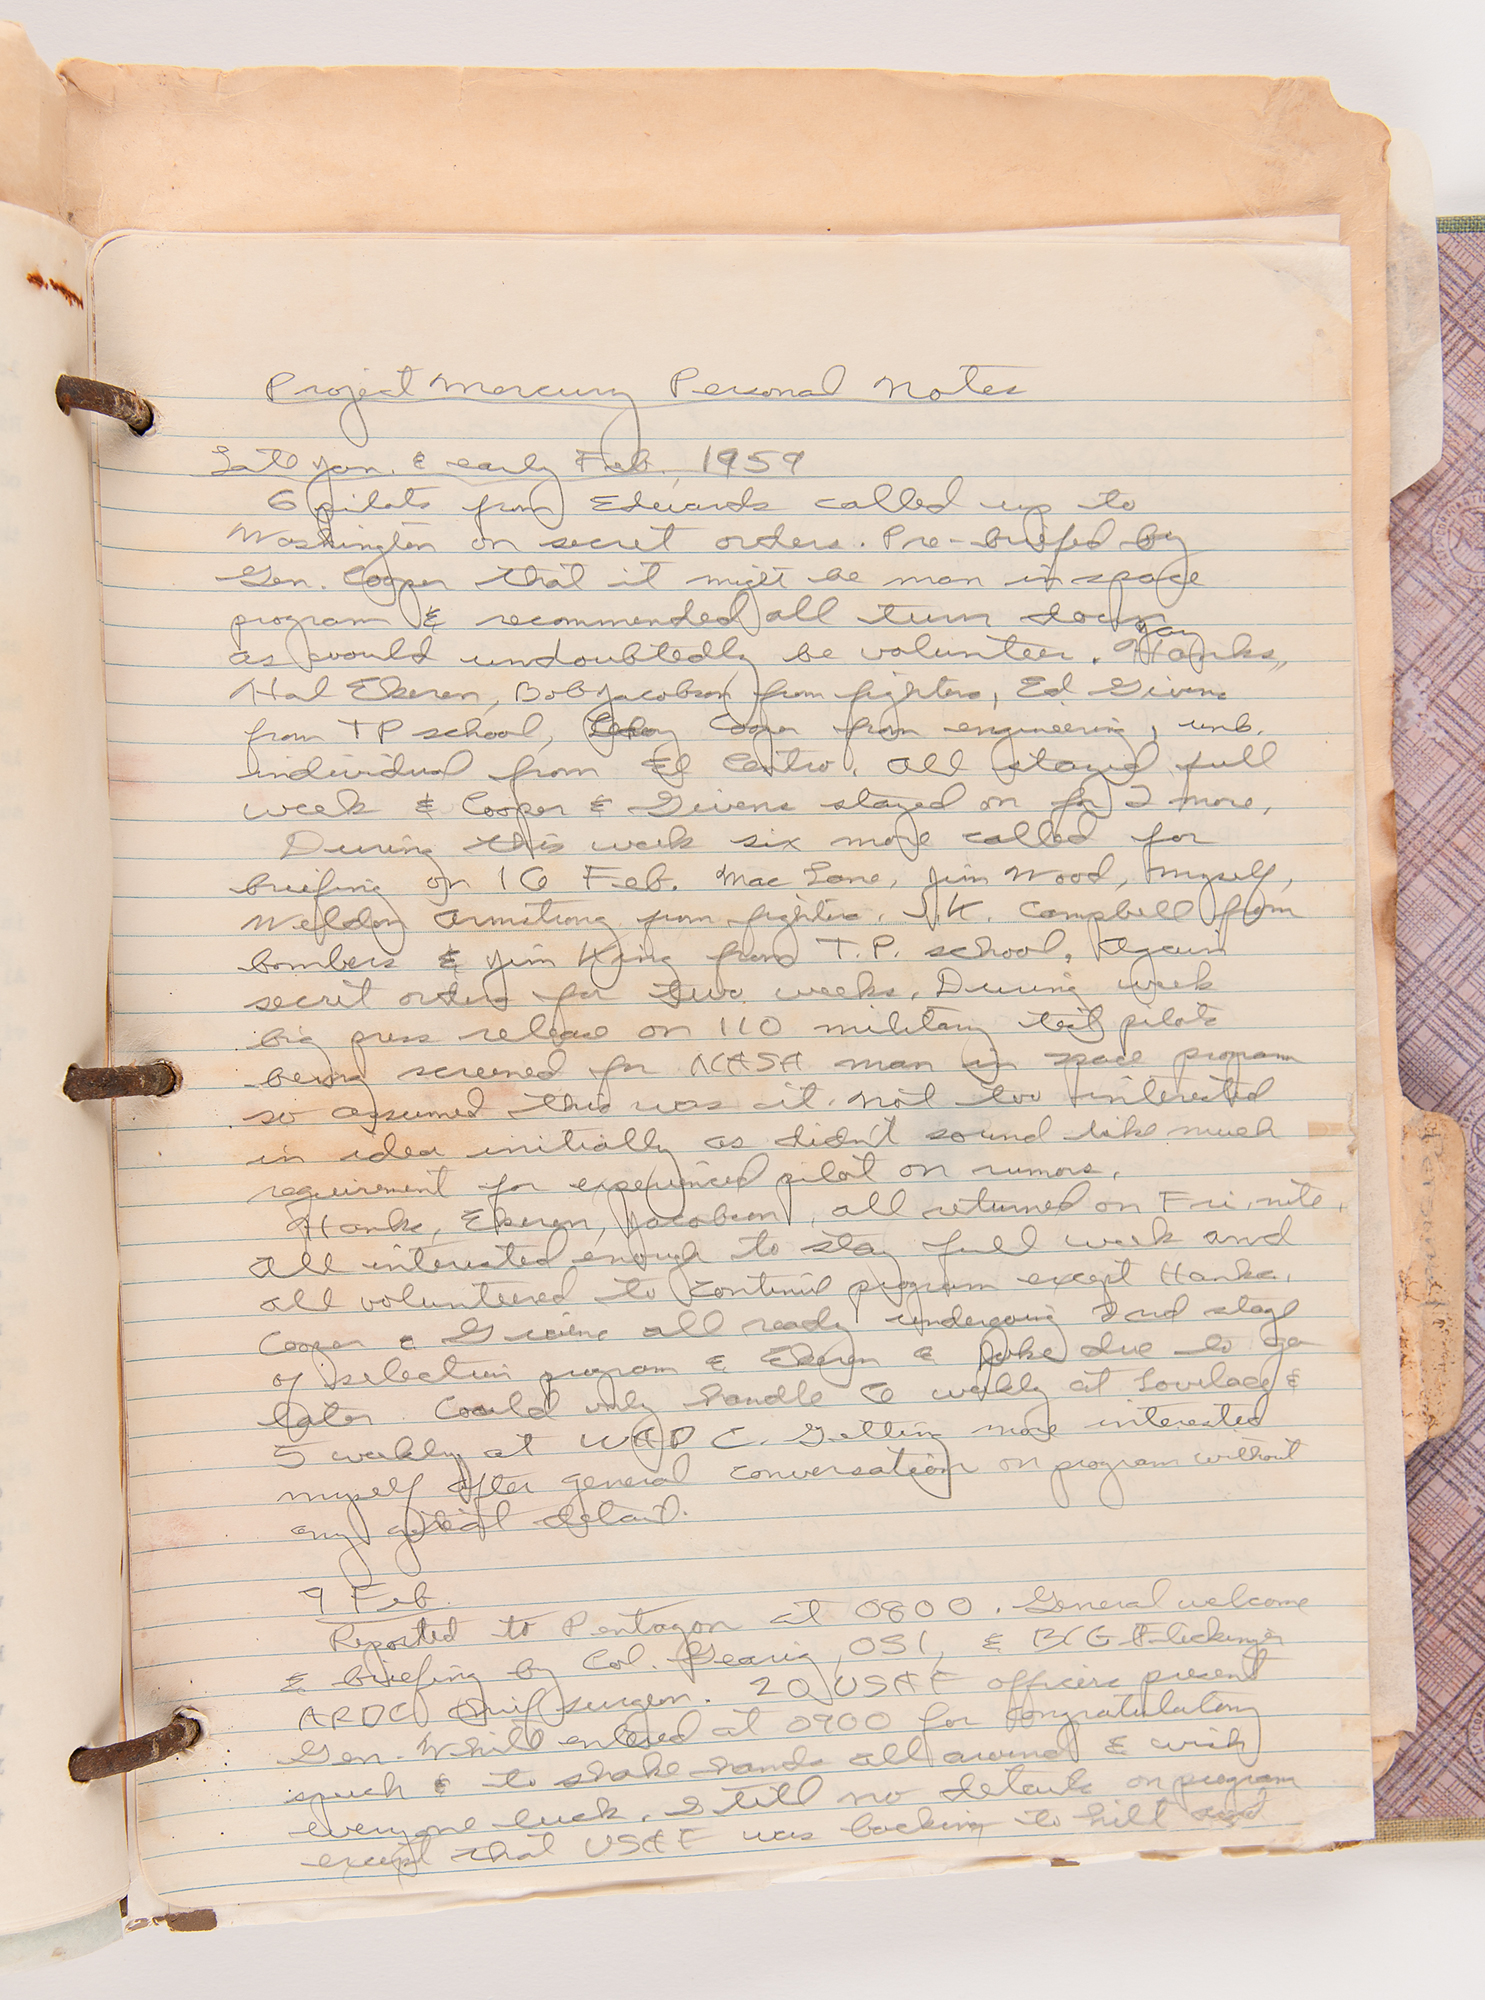 Project Mercury Personal Notes
Late Jan. & early Feb. 1959
6 pilots from Edwards called up to
Washington on secret orders. Pre-briefed by
Gen. Cooper that it might be man in space
program & recommended all turn down
as would undoubtedly be volunteer. Hanks,
Hal Ekeren, Bob Jacobson from fighters, Ed Givens
from TP school, Cooper from engineering, unk.
individual from El Centro. All stayed full
week & Cooper & Givens stayed on for 2 more.
During this week six more called for
briefing on 16 Feb. Mac Lane, Jim Wood, myself,
Weldon Armstrong from fighters, J.K. Campbell from
bombers & Jim King from T.P. school. Again
secret orders for two weeks. During week
big press release on 110 military test pilots
being screened for NASA man in space program
so assumed this was it. Not too interested
in idea initially as didn't sound like much
requirement for experienced pilot on rumors.
Hanks, Ekeren, Jacobson, all returned on Fri. nite.
All interested enough to stay full week and
all volunteered to continue program except Hanks.
Cooper & Givens all ready undergoing 2nd stage
of selection program & Ekeren & Jake due to go
later. Could only handle 6 weekly at Lovelace &
5 weekly at WADC. Getting more interested
myself after general conversation on program without
any detail.
9 Feb.
Reported to Pentagon at 0800. General welcome
& briefing by Col. Gearig, OSI, & B/G Flickinger
ARDC Chief surgeon. 20 USAF officers present
Gen. White entered at 0900 for congratulatory
speech & to shake hands all around & wish
everyone luck. Still no details on program
except that USAF was backing to hilt and